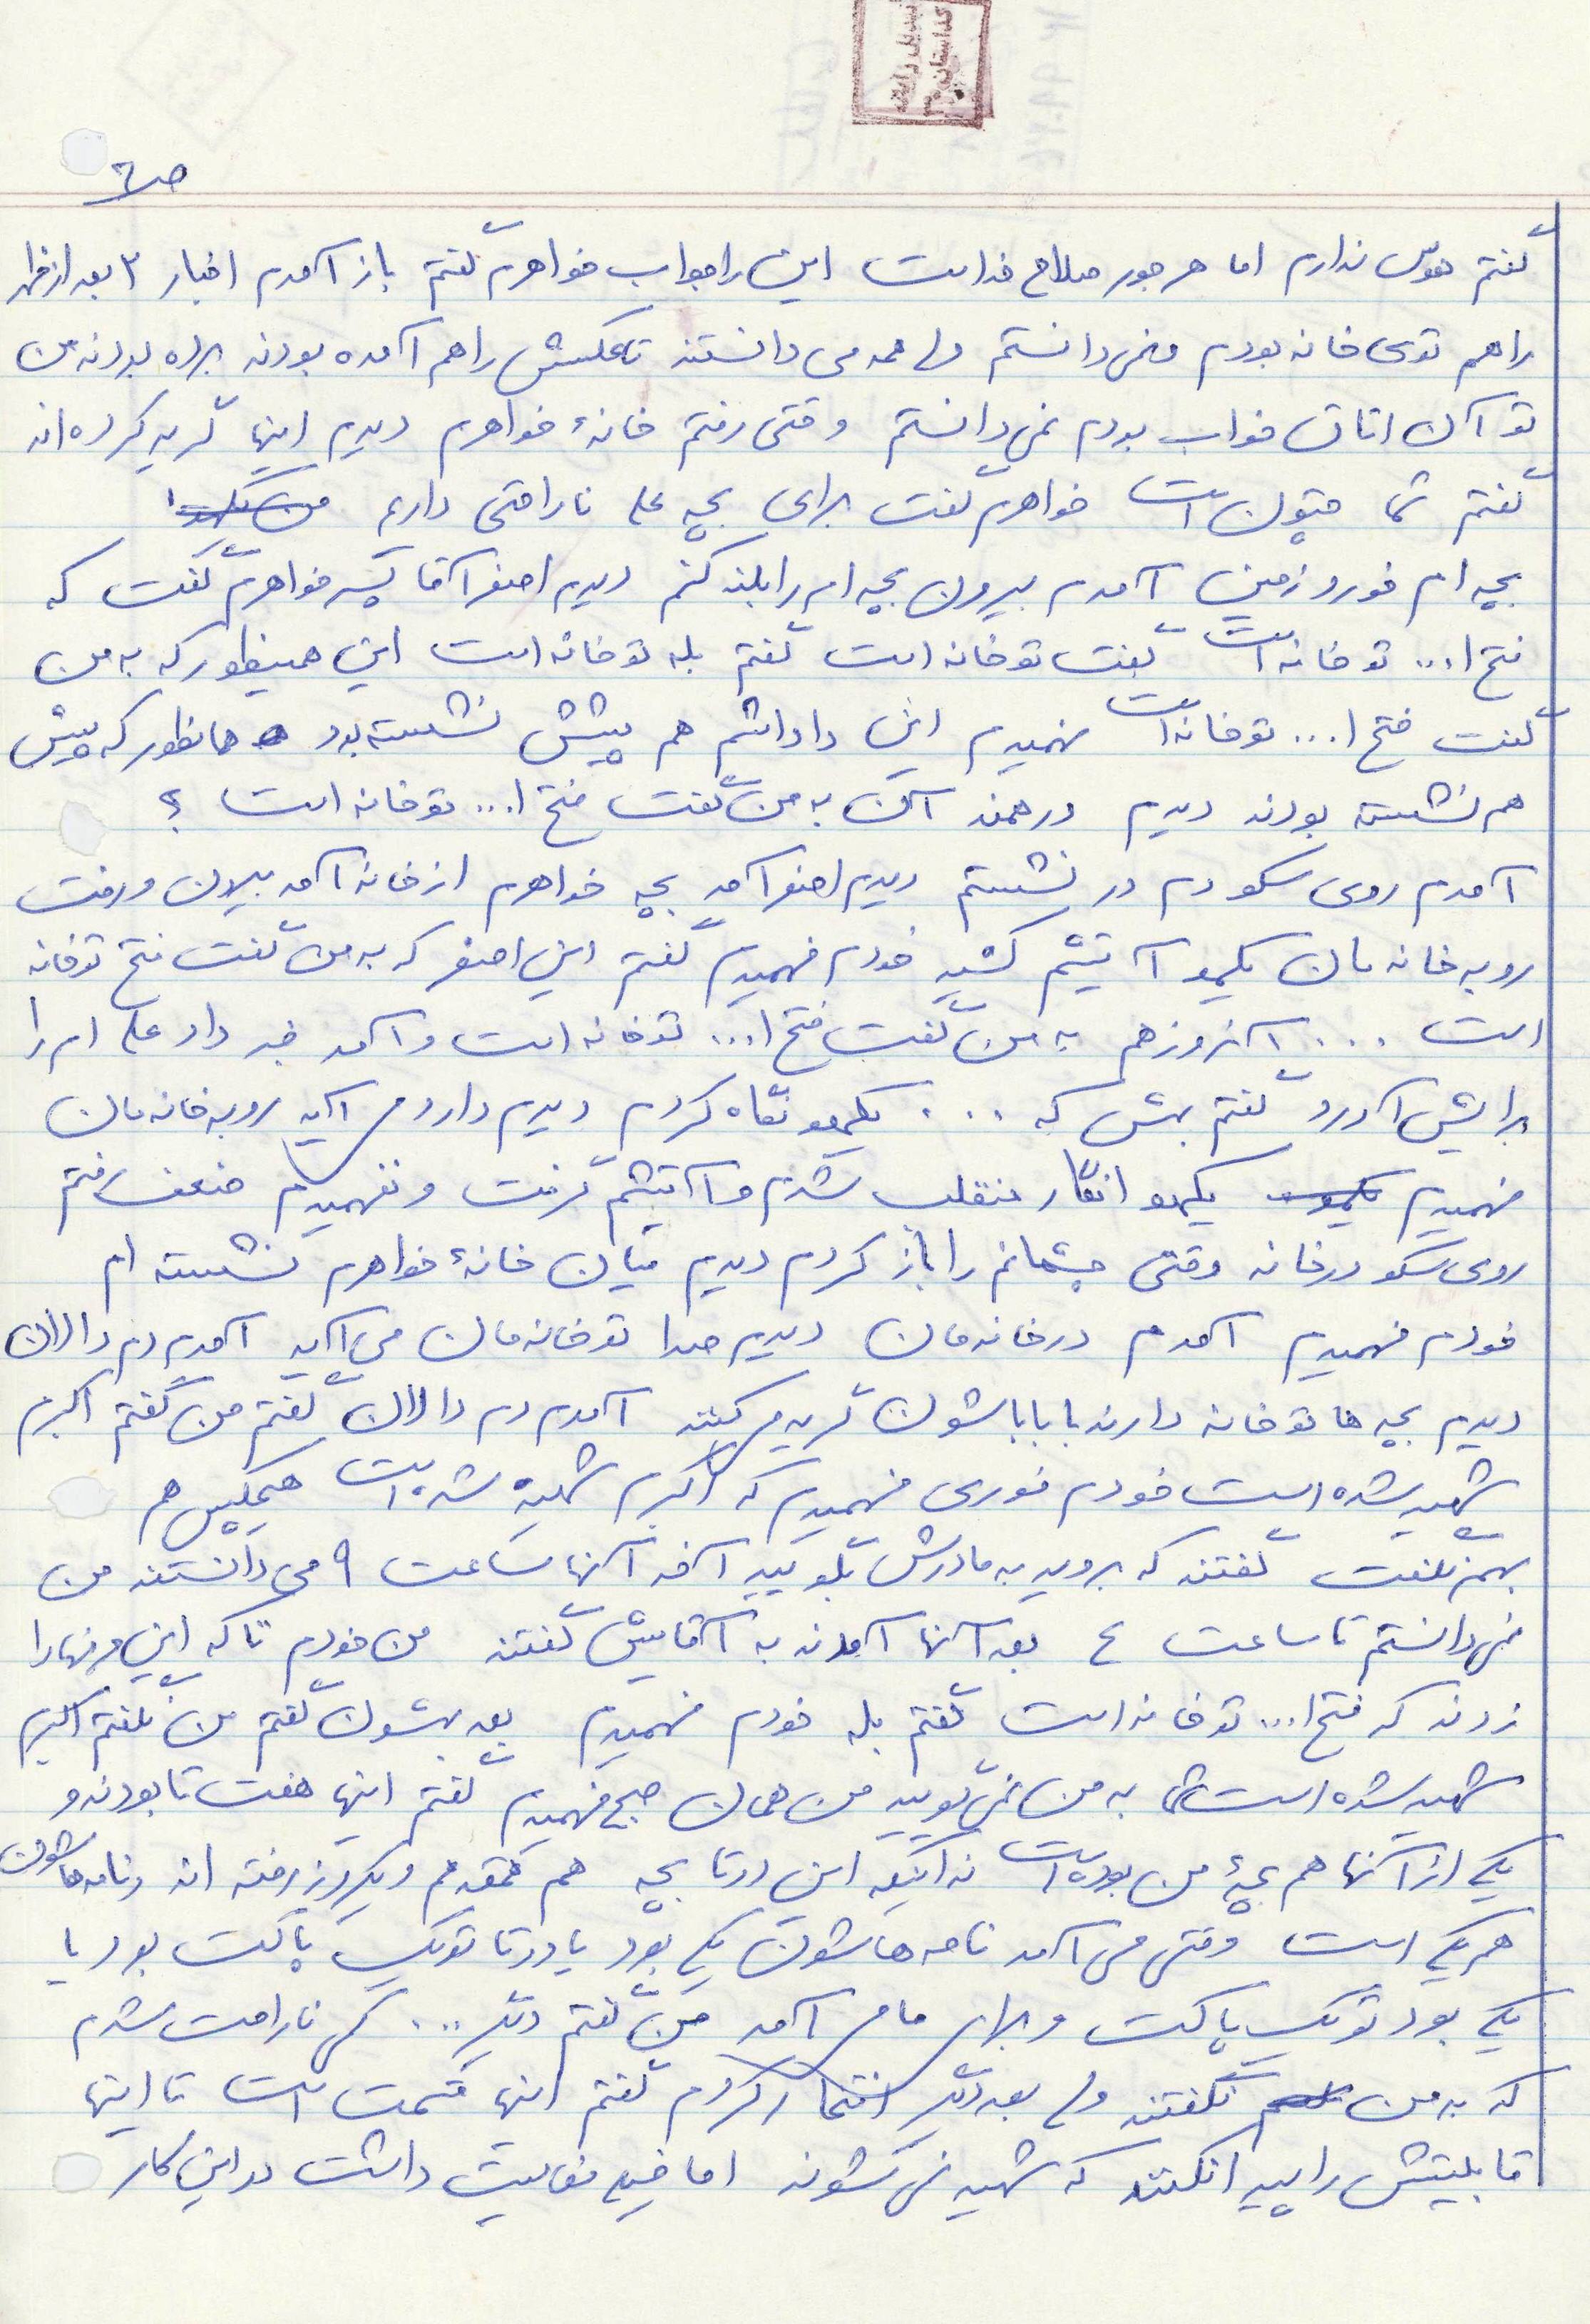 ص۶
گفتم هوس ندارم اما هرجور صلاح خداست این را جواب خواهرم گفتم باز آمدم اخبار ۲ بعد از ظهر
را هم توی خانه بودم و نمی دانستم ولی همه می دانستند تا عکسش را هم آمده بودند برده بودند من
تو آن اتاق خواب بودم نمی دانستم وقتی رفتم خانهٔ خواهرم دیدم اینها گریه کرده اند
گفتم شما چتون است خواهرم گفت برای بچه علی ناراحتی داریم
بچه ام خورد زمین آمدم بیرون بچه ام را بلند کنم دیدم اصغر آقا پسر خواهرم گفت که
فتح ا... تو خانه است گفت تو خانه است گفتم بله تو خانه است این همینطور که به من
گفت فتح ا... تو خانه است فهمیدم این داداشم هم پیشش نشسته بود همانطور که پیش
هم نشسته بودند دیدم آن به من گفت فتح ا... تو خانه است ؟
آمدم روی سکو دم در نشستم دیدم اصغر آمد بچه خواهرم از خانه آمد بیرون و رفت
رو به خانه مان یکهو آتیشم کشید خودم فهمیدم گفتم این اصغر که به من گفت فتح تو خانه
است ... آنروز هم به من گفت فتح ا... تو خانه است و آمد خبر داد علی ام را
برایش آورد گفتم بهش که ... یکهو نگاه کردم دیدم دارد می آید رو به خانه مان
فهمیدم یکهو انگار منقلب شدم و آتیشم گرفت و نفهمیدم ضعف رفتم
روی سکو در خانه وقتی چشمانم را باز کردم دیدم میان خانهٔ خواهرم نشسته ام
خودم فهمیدم آمدم در خانه مان دیدم صدا تو خانه مان می آید آمدم دم دالان
دیدم بچه ها تو خانه دارند با باباشون گریه می کنند آمدم دم دالان گفتم من گفتم اکبرم
شهید شده است خودم فوری فهمیدم که اکبرم شهید شده است هیچکس هم
بهم نگفت گفتند که بروید به مادرش بگویید آخه آنها ساعت ۹ می دانستند من
نمی دانستم تا ساعت ٤ بعد آنها آمدند به آقایش گفتند من خودم تا که این حرفها را
زدند که فتح ا... تو خانه است گفتم بله خودم فهمیدم بعد بهشون گفتم من گفتم اکبرم
شهید شده است شما به من نمی گویید من همان صبح فهمیدم گفتم اینها هفت تا بودند و
یکی از آنها هم بچهٔ من بوده است این دو تا بچه هم و یکروز رفته اند و نامه هاشون
هم یکی است وقتی می آمد نامه هاشون یکی بود یا دو تا تو یک پاکت بود یا
یکی بود تو یک پاکت و برای ما می آمد من گفتم دیگر ... کمی ناراحت شدم
که به من نگفتند ولی بعد دیگر افتخار کردم گفتم اینها قسمت است تا اینها
قابلیتش را پیدا نکنند که شهید نمی شوند اما خیلی فعالیت داشت در این کار